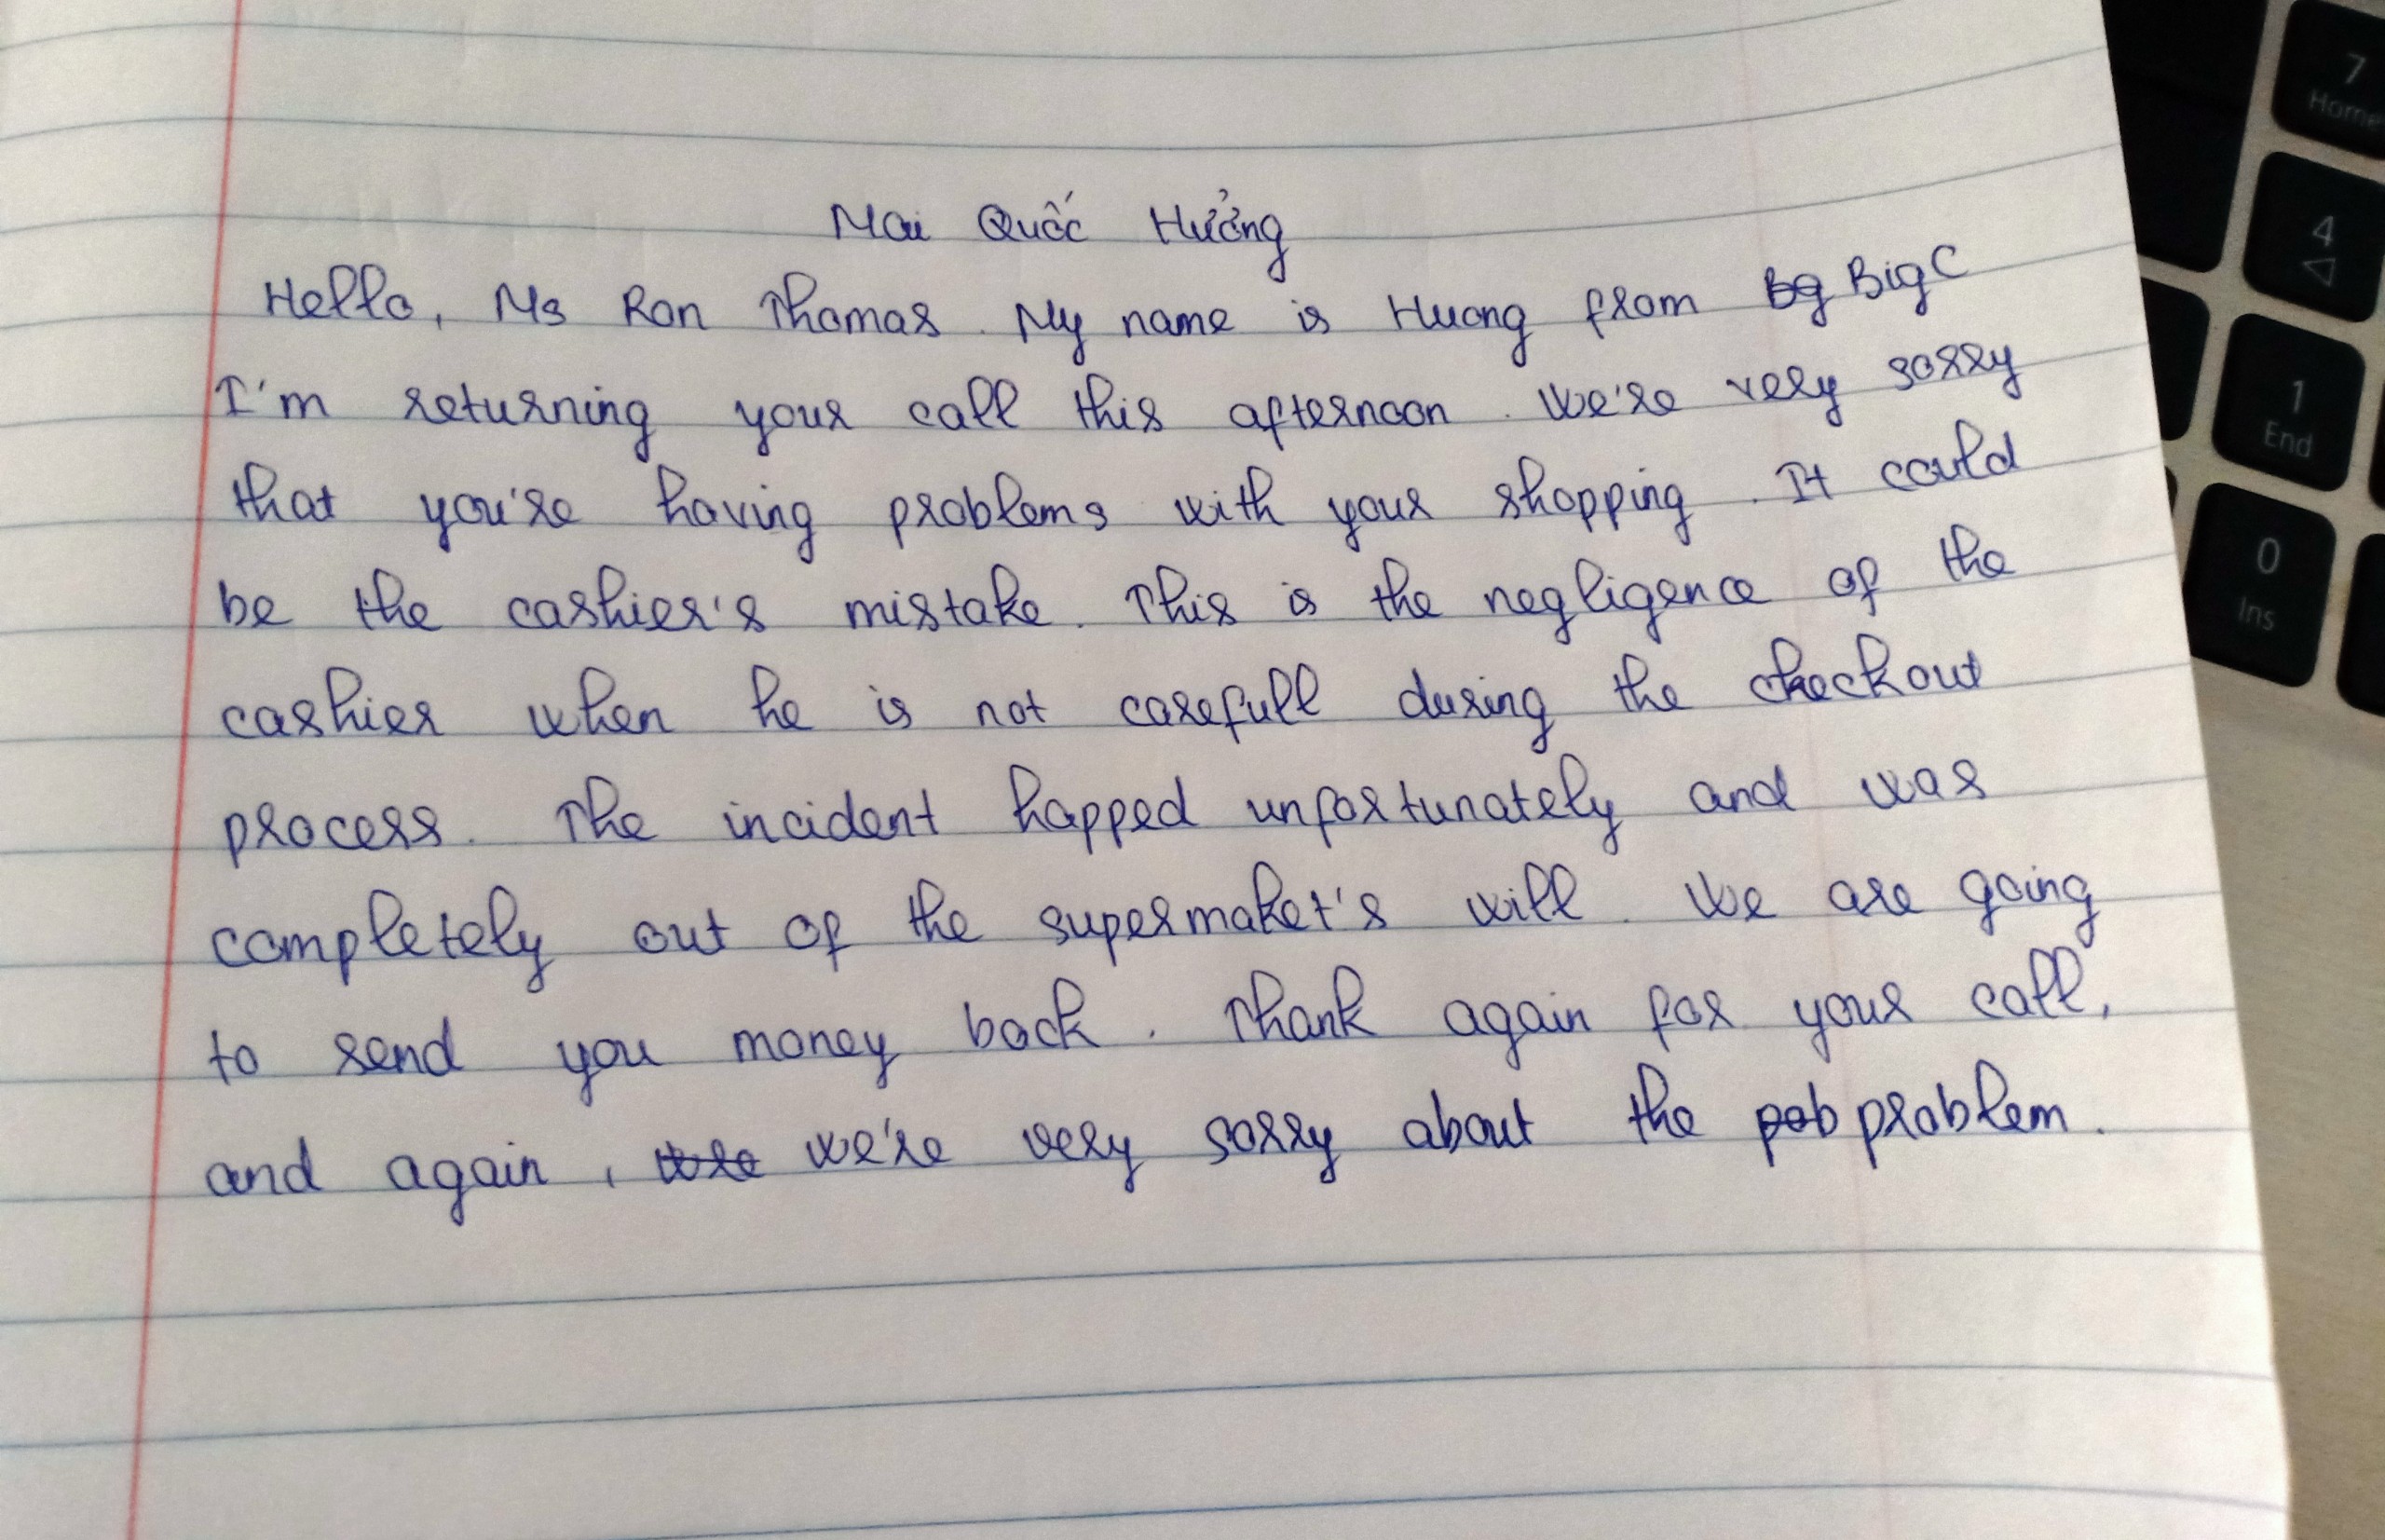 Mai Quốc Hưởng
Hello, Ms Ron Thomas. My name is Huong from Bg BigC
I'm returning your call this afternoon. We're very sorry
that you're having problems with your shopping. It could
be the cashier's mistake. This is the negligence of the
cashier when he is not carefull during the checkout
process. The incident happed unfortunately and was
completely out of the supermaket's will. We are going
to send you money back. Thank again for your call,
and again, we're very sorry about the pob problem.
7
Home
4
1
End
0
Ins